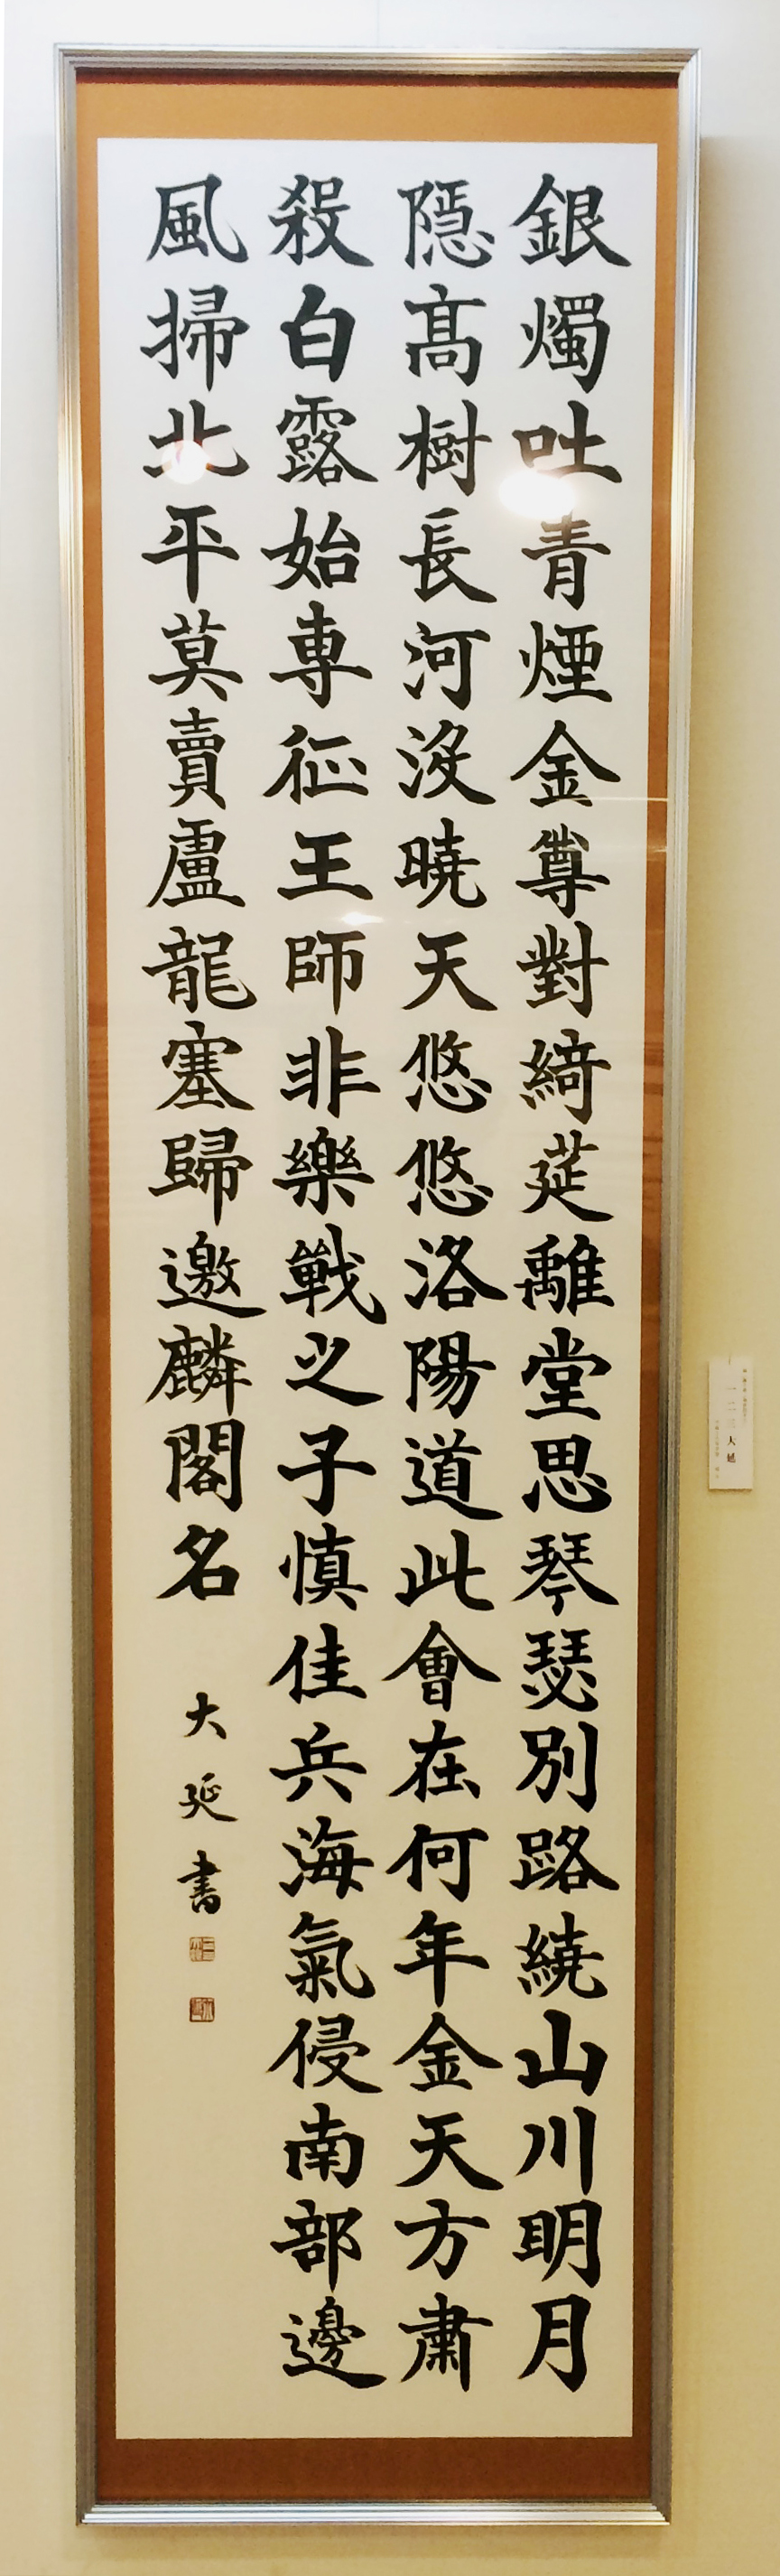 銀燭吐青煙金尊對綺莚離堂思琴瑟別路繞山川明月
隱高樹長河沒曉天悠悠洛陽道此會在何年金天方肅
殺白露始専征王師非樂戰之子慎佳兵海氣侵南部邊
風掃北平莫賣盧龍塞歸邀麟閣名
大延書
一二三大延